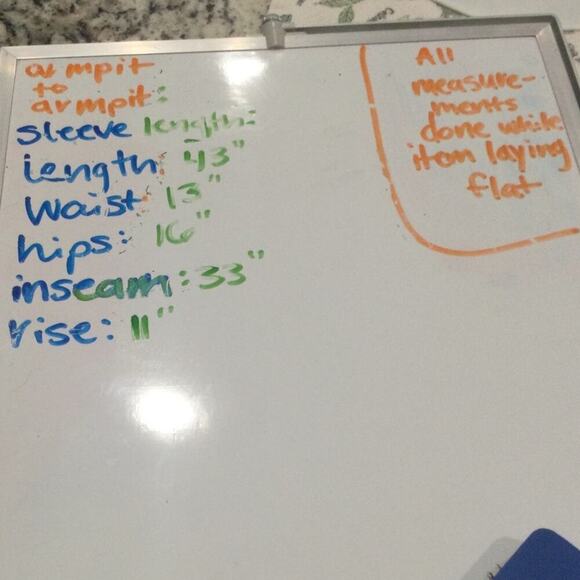 armpit
to
armpit:
sleeve length:
Length: 43"
Waist: 13"
hips: 16"
inseam: 33"
rise: 11"
All
measure-
ments
done while
item laying
flat